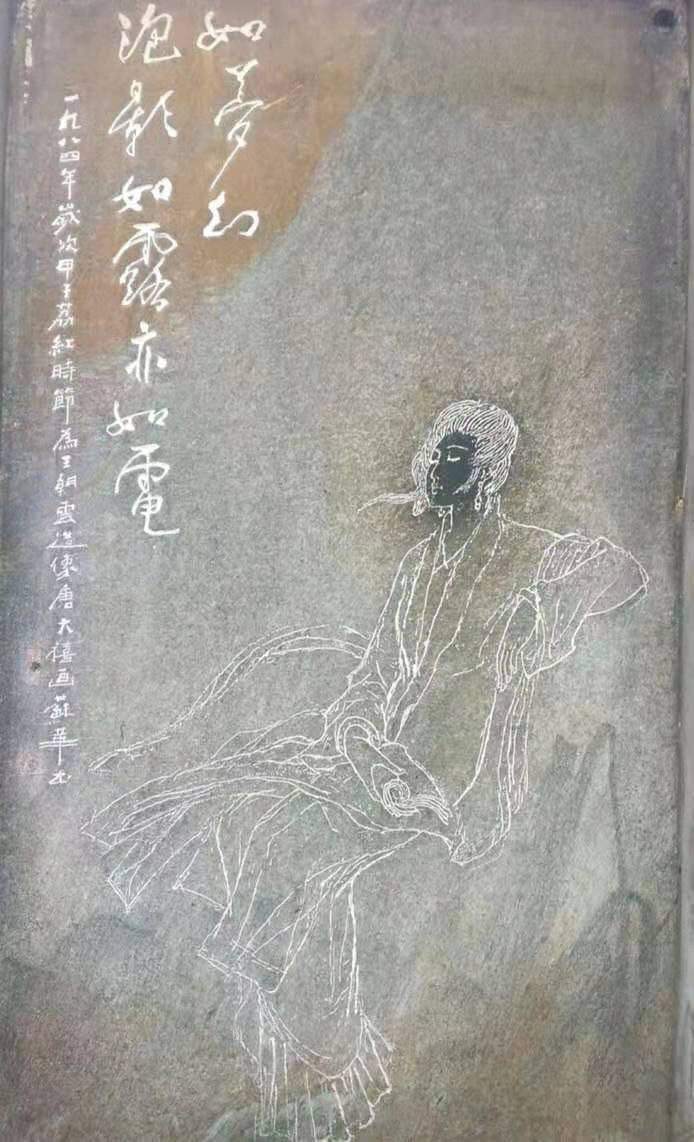 如夢幻
泡影如露亦如電
一九八四年歲次甲子荔紅時節為王朝雲造像唐大禧画蘇華书